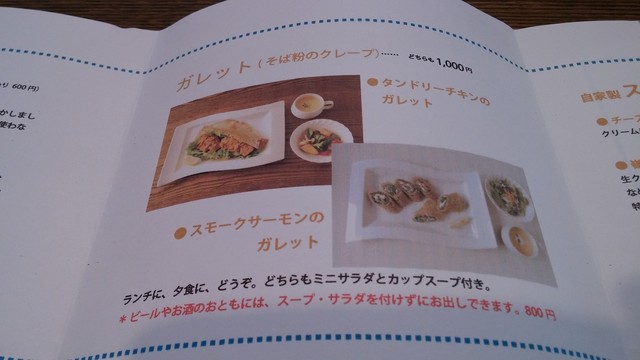 ガレット(そば粉のクレープ)…… どちらも1,000円
●タンドリーチキンの
ガレット
●スモークサーモンの
ガレット
ランチに、夕食に、どうぞ。どちらもミニサラダとカップスープ付き。
*ビールやお酒のおともには、スープ・サラダを付けずにお出しできます。800円
600円)
かしまし
使わな
自家製
●チーズ
クリーム
生ク